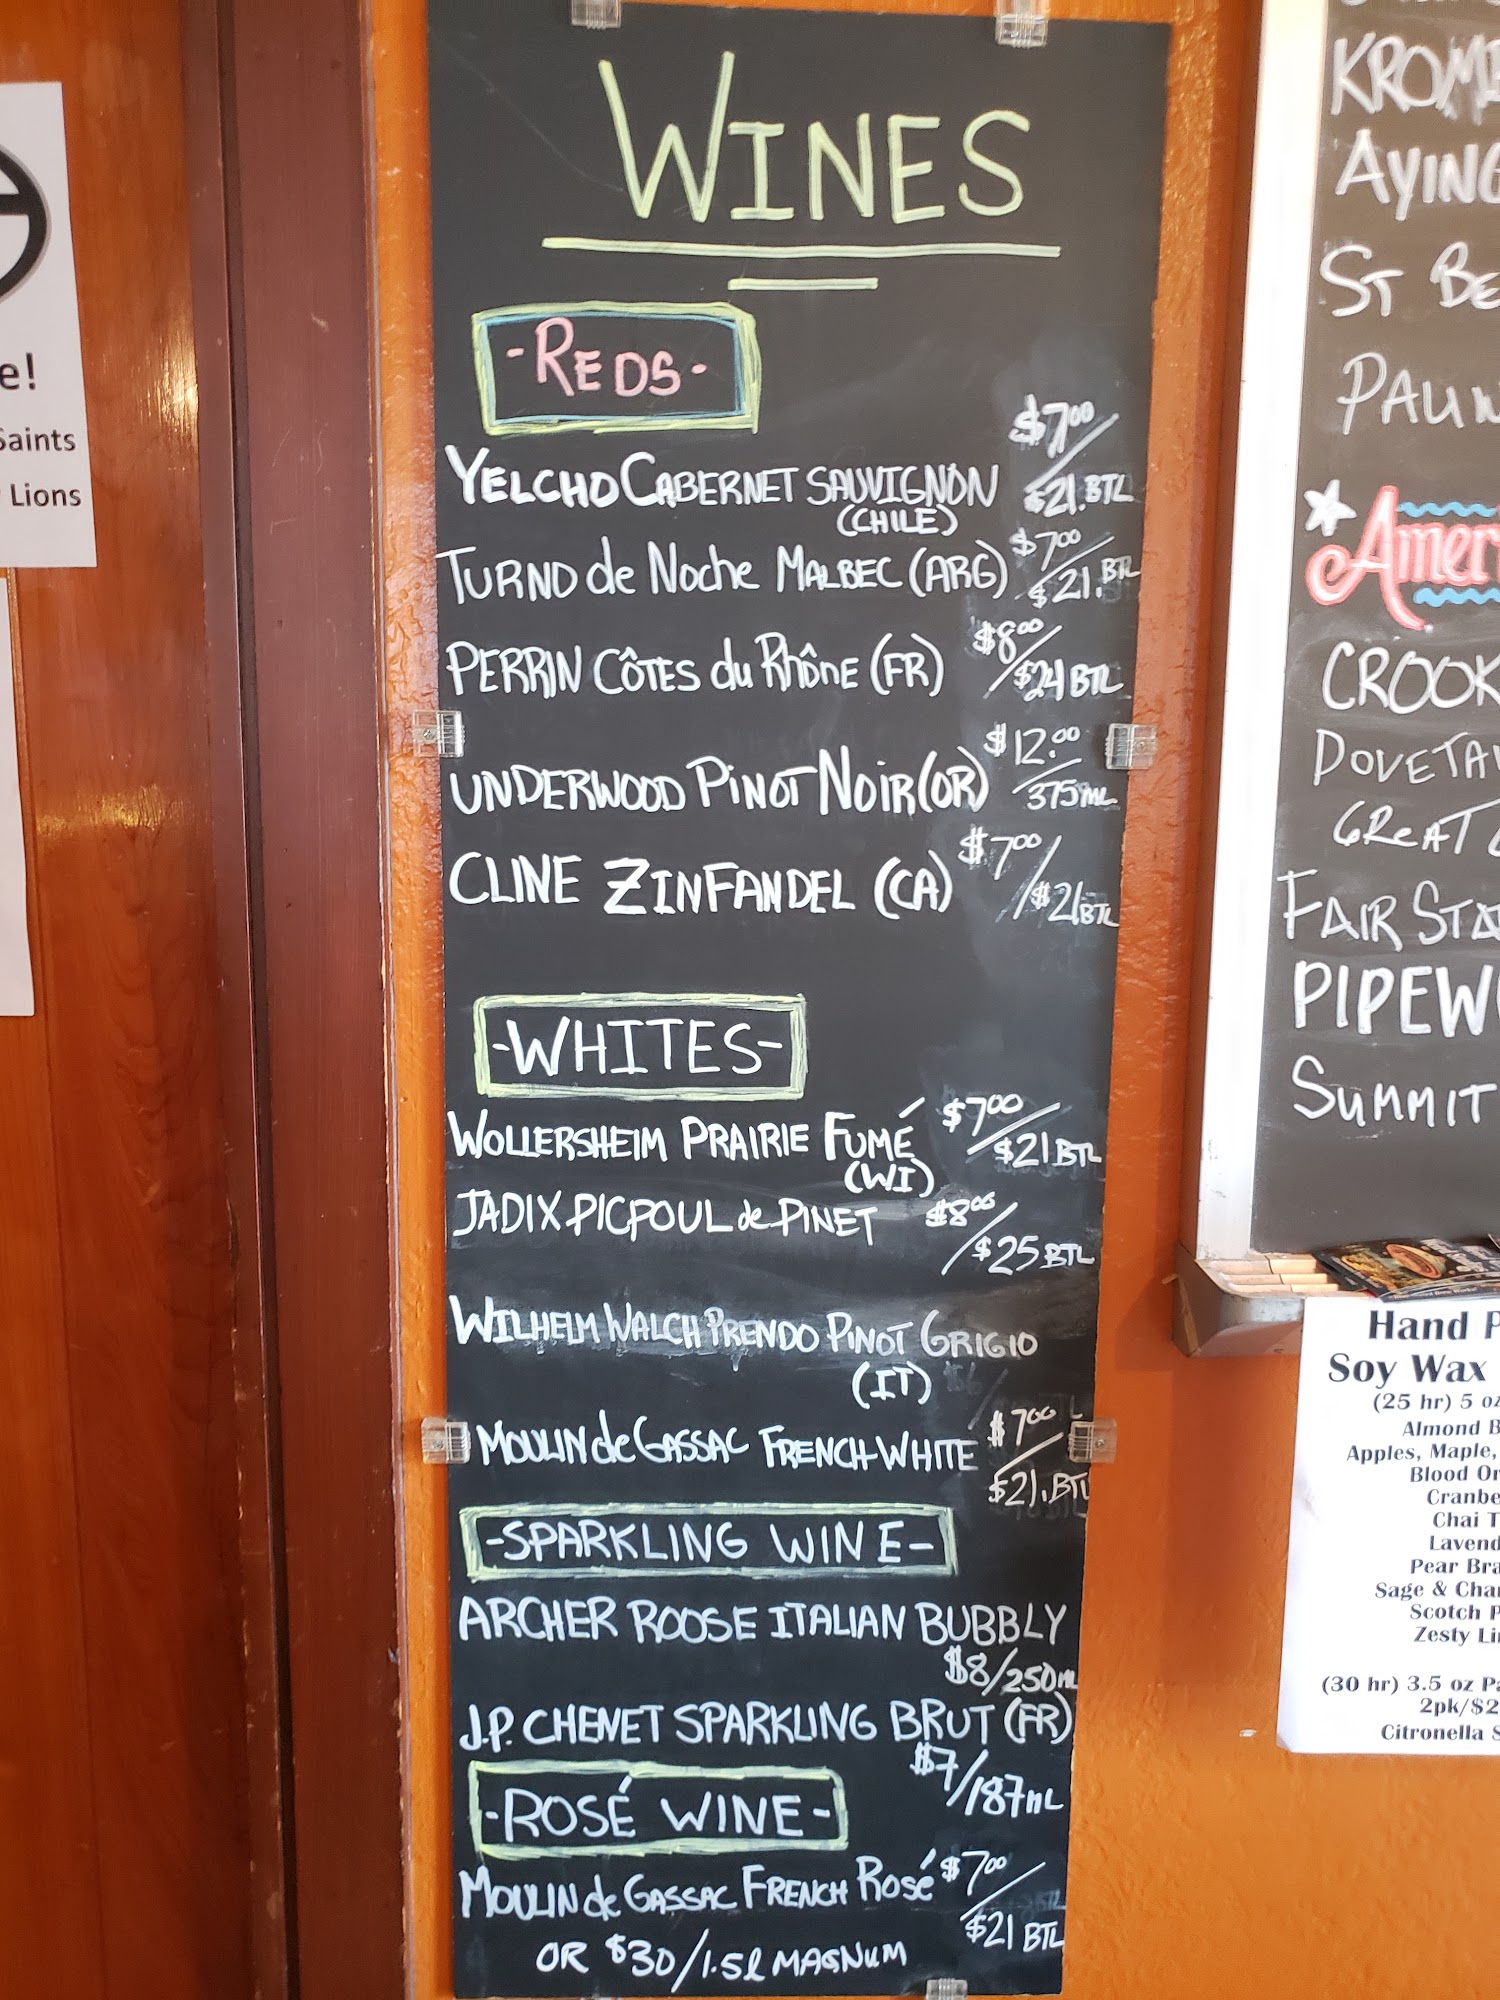 WINES
-REDS-
$7.00
YELCHO CABERNET SAUVIGNON / $21. BTL
(CHILE)
TURNO de Noche MALBEC (ARG) $7.00 / $21. BTL
PERRIN CÔTES du Rhône (FR) $8.00 / $24 BTL
UNDERWOOD PINOT NOIR (OR) $12.00 / 375mL
CLINE ZINFANDEL (CA) $7.00 / $21 BTL
-WHITES-
WOLLERSHEIM PRAIRIE FUMÉ $7.00 / $21 BTL
(WI)
JADIX PICPOUL de PINET $8.00 / $25 BTL
WILHELM WALCH PRENDO PINOT GRIGIO
(IT)
MOULIN de GASSAC FRENCH WHITE $7.00 / $21. BTL
-SPARKLING WINE-
ARCHER ROOSE ITALIAN BUBBLY
$8/250mL
J.P. CHENET SPARKLING BRUT (FR)
$7/187mL
-ROSÉ WINE-
MOULIN de GASSAC FRENCH Rosé $7.00 / $21 BTL
OR $30/1.5l MAGNUM
e!
Saints
Lions
ST
Amer
CROOK
GREAT
FAIR
SUMMIT
Hand P
Soy Wax
(25 hr) 5 oz
Almond B
Apples, Maple,
Blood Or
Cranbe
Chai T
Lavend
Pear Bra
Sage & Cha
Scotch P
Zesty Li
(30 hr) 3.5 oz Pa
2pk/$2
Citronella S